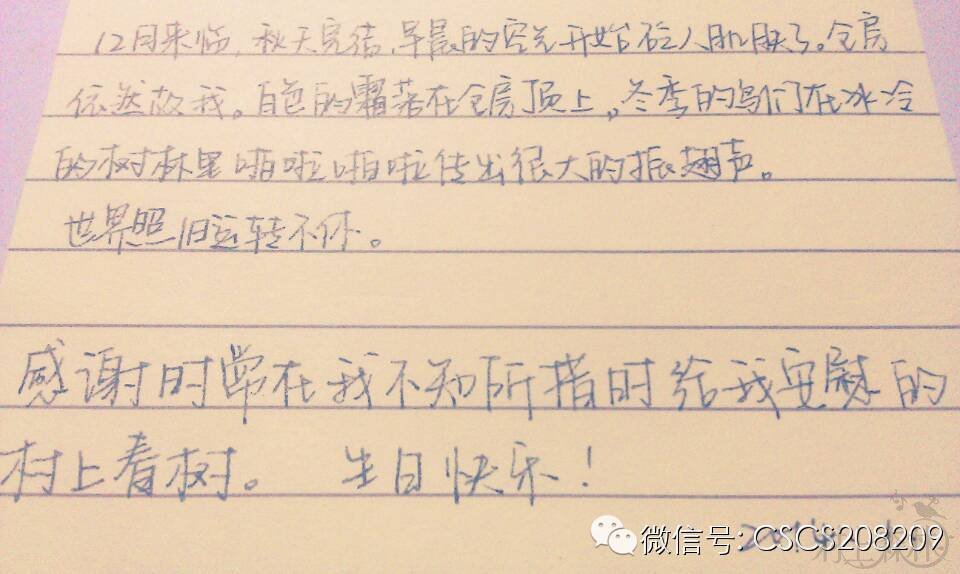 12月来临,秋天完结,早晨的空气开始砭人肌肤了。仓房
依然故我。白色的霜落在仓房顶上,冬季的鸟们在冰冷
的树林里啪啦啪啦传出很大的振翅声。
世界照旧运转不休。
感谢时常在我不知所措时给我安慰的
村上春树。 生日快乐!
微信号: CSCS208209